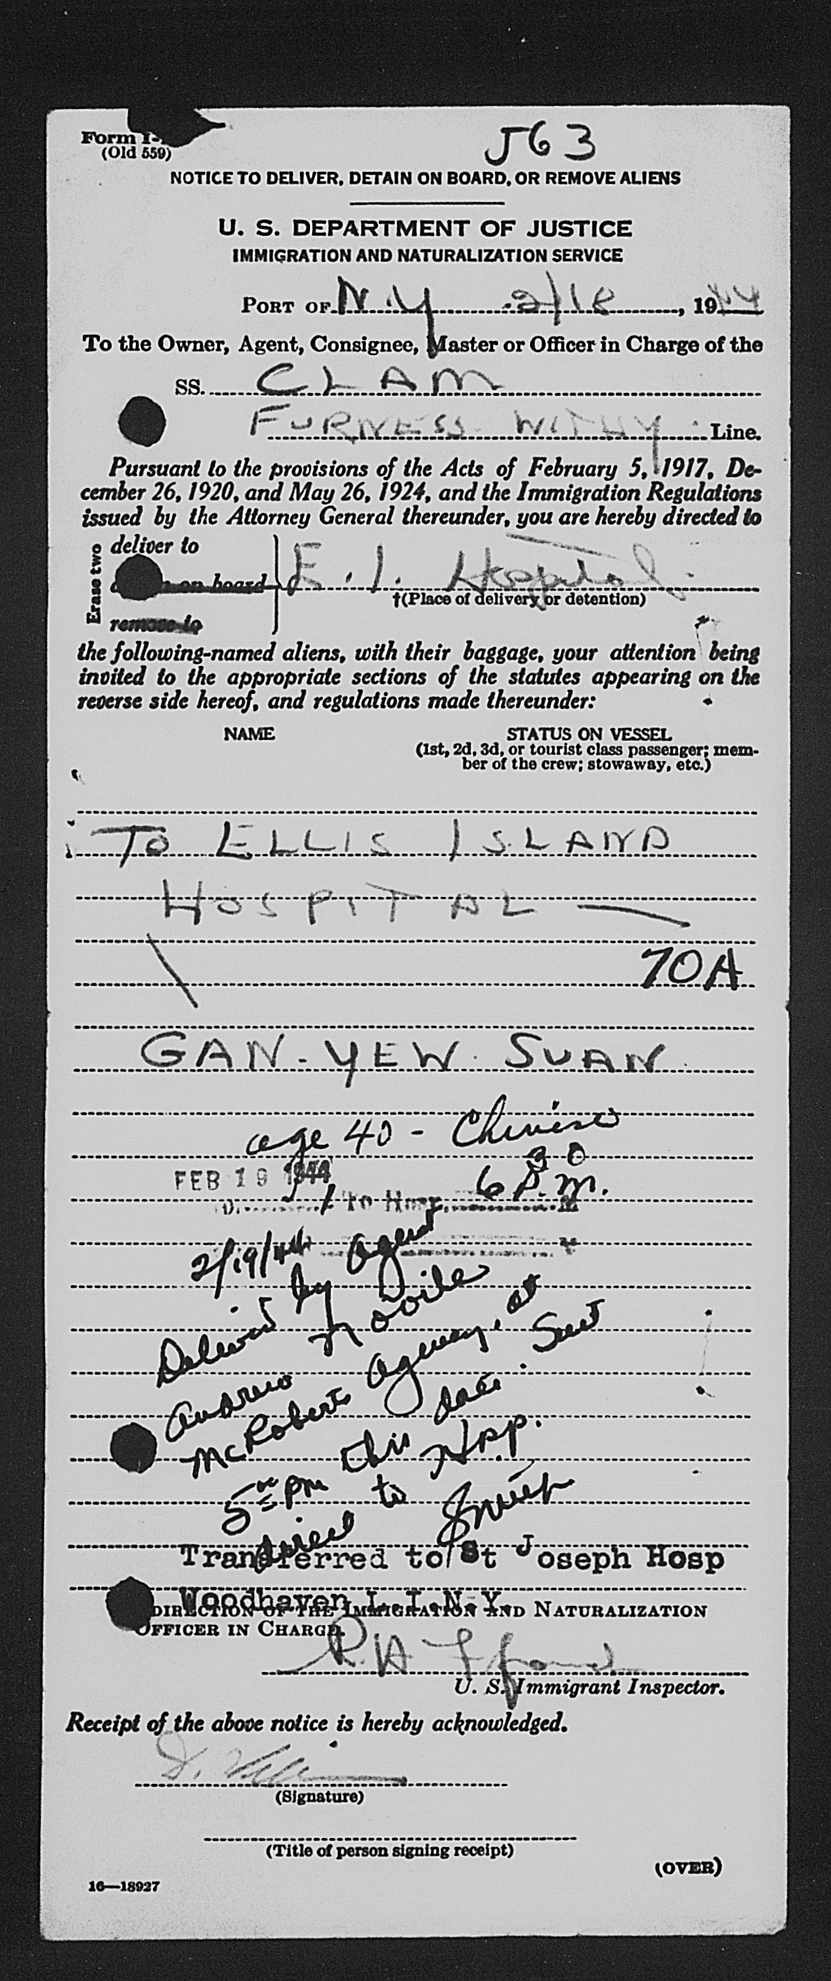 Form I-
(Old 559)
J63
NOTICE TO DELIVER, DETAIN ON BOARD, OR REMOVE ALIENS
U. S. DEPARTMENT OF JUSTICE
IMMIGRATION AND NATURALIZATION SERVICE
PORT OF N.Y 2/18, 1944
To the Owner, Agent, Consignee, Master or Officer in Charge of the
SS. CLAM
FURNESS WITHY Line.
Pursuant to the provisions of the Acts of February 5, 1917, De-
cember 26, 1920, and May 26, 1924, and the Immigration Regulations
issued by the Attorney General thereunder, you are hereby directed to
Erase two
deliver to
on board
remove to
E. I. Hospital
†(Place of delivery or detention)
the following-named aliens, with their baggage, your attention being
invited to the appropriate sections of the statutes appearing on the
reverse side hereof, and regulations made thereunder:
NAME
STATUS ON VESSEL
(1st, 2d, 3d, or tourist class passenger; mem-
ber of the crew; stowaway, etc.)
TO ELLIS ISLAND
HOSPITAL —
70A
GAN - YEW SUAN
age 40 - Chinese
FEB 19 1944
To Hosp. 6 30 P.m.
2/19/44
Delivered by agent
Andrew Nobile
McRoberts Agency, at
5 00 pm this date. Sent
direct to Hosp.
Transferred to St Joseph Hosp
Woodhaven L.I.N.Y.
DIRECTION OF THE IMMIGRATION AND NATURALIZATION
OFFICER IN CHARGE
U. S. Immigrant Inspector.
Receipt of the above notice is hereby acknowledged.
(Signature)
(Title of person signing receipt)
(OVER)
16—18927